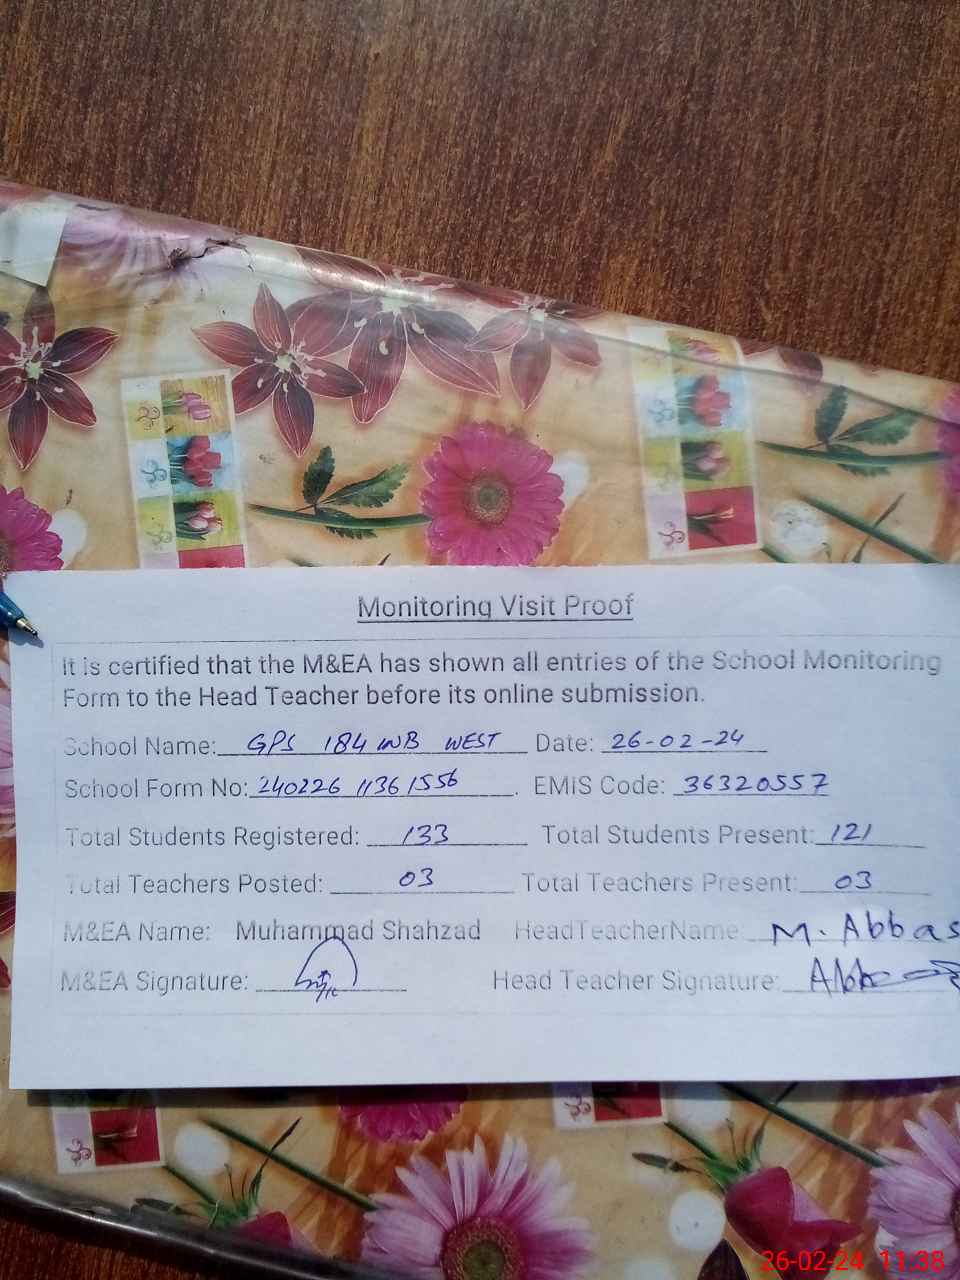 Monitoring Visit Proof
It is certified that the M&EA has shown all entries of the School Monitoring
Form to the Head Teacher before its online submission.
School Name: GPS 184 WB WEST Date: 26-02-24
School Form No: 240226 11361556. EMIS Code: 36320557
Total Students Registered: 133 Total Students Present: 121
Total Teachers Posted: 03 Total Teachers Present: 03
M&EA Name: Muhammad Shahzad HeadTeacherName: M. Abbas
M&EA Signature: Head Teacher Signature:
26-02-24 11:38